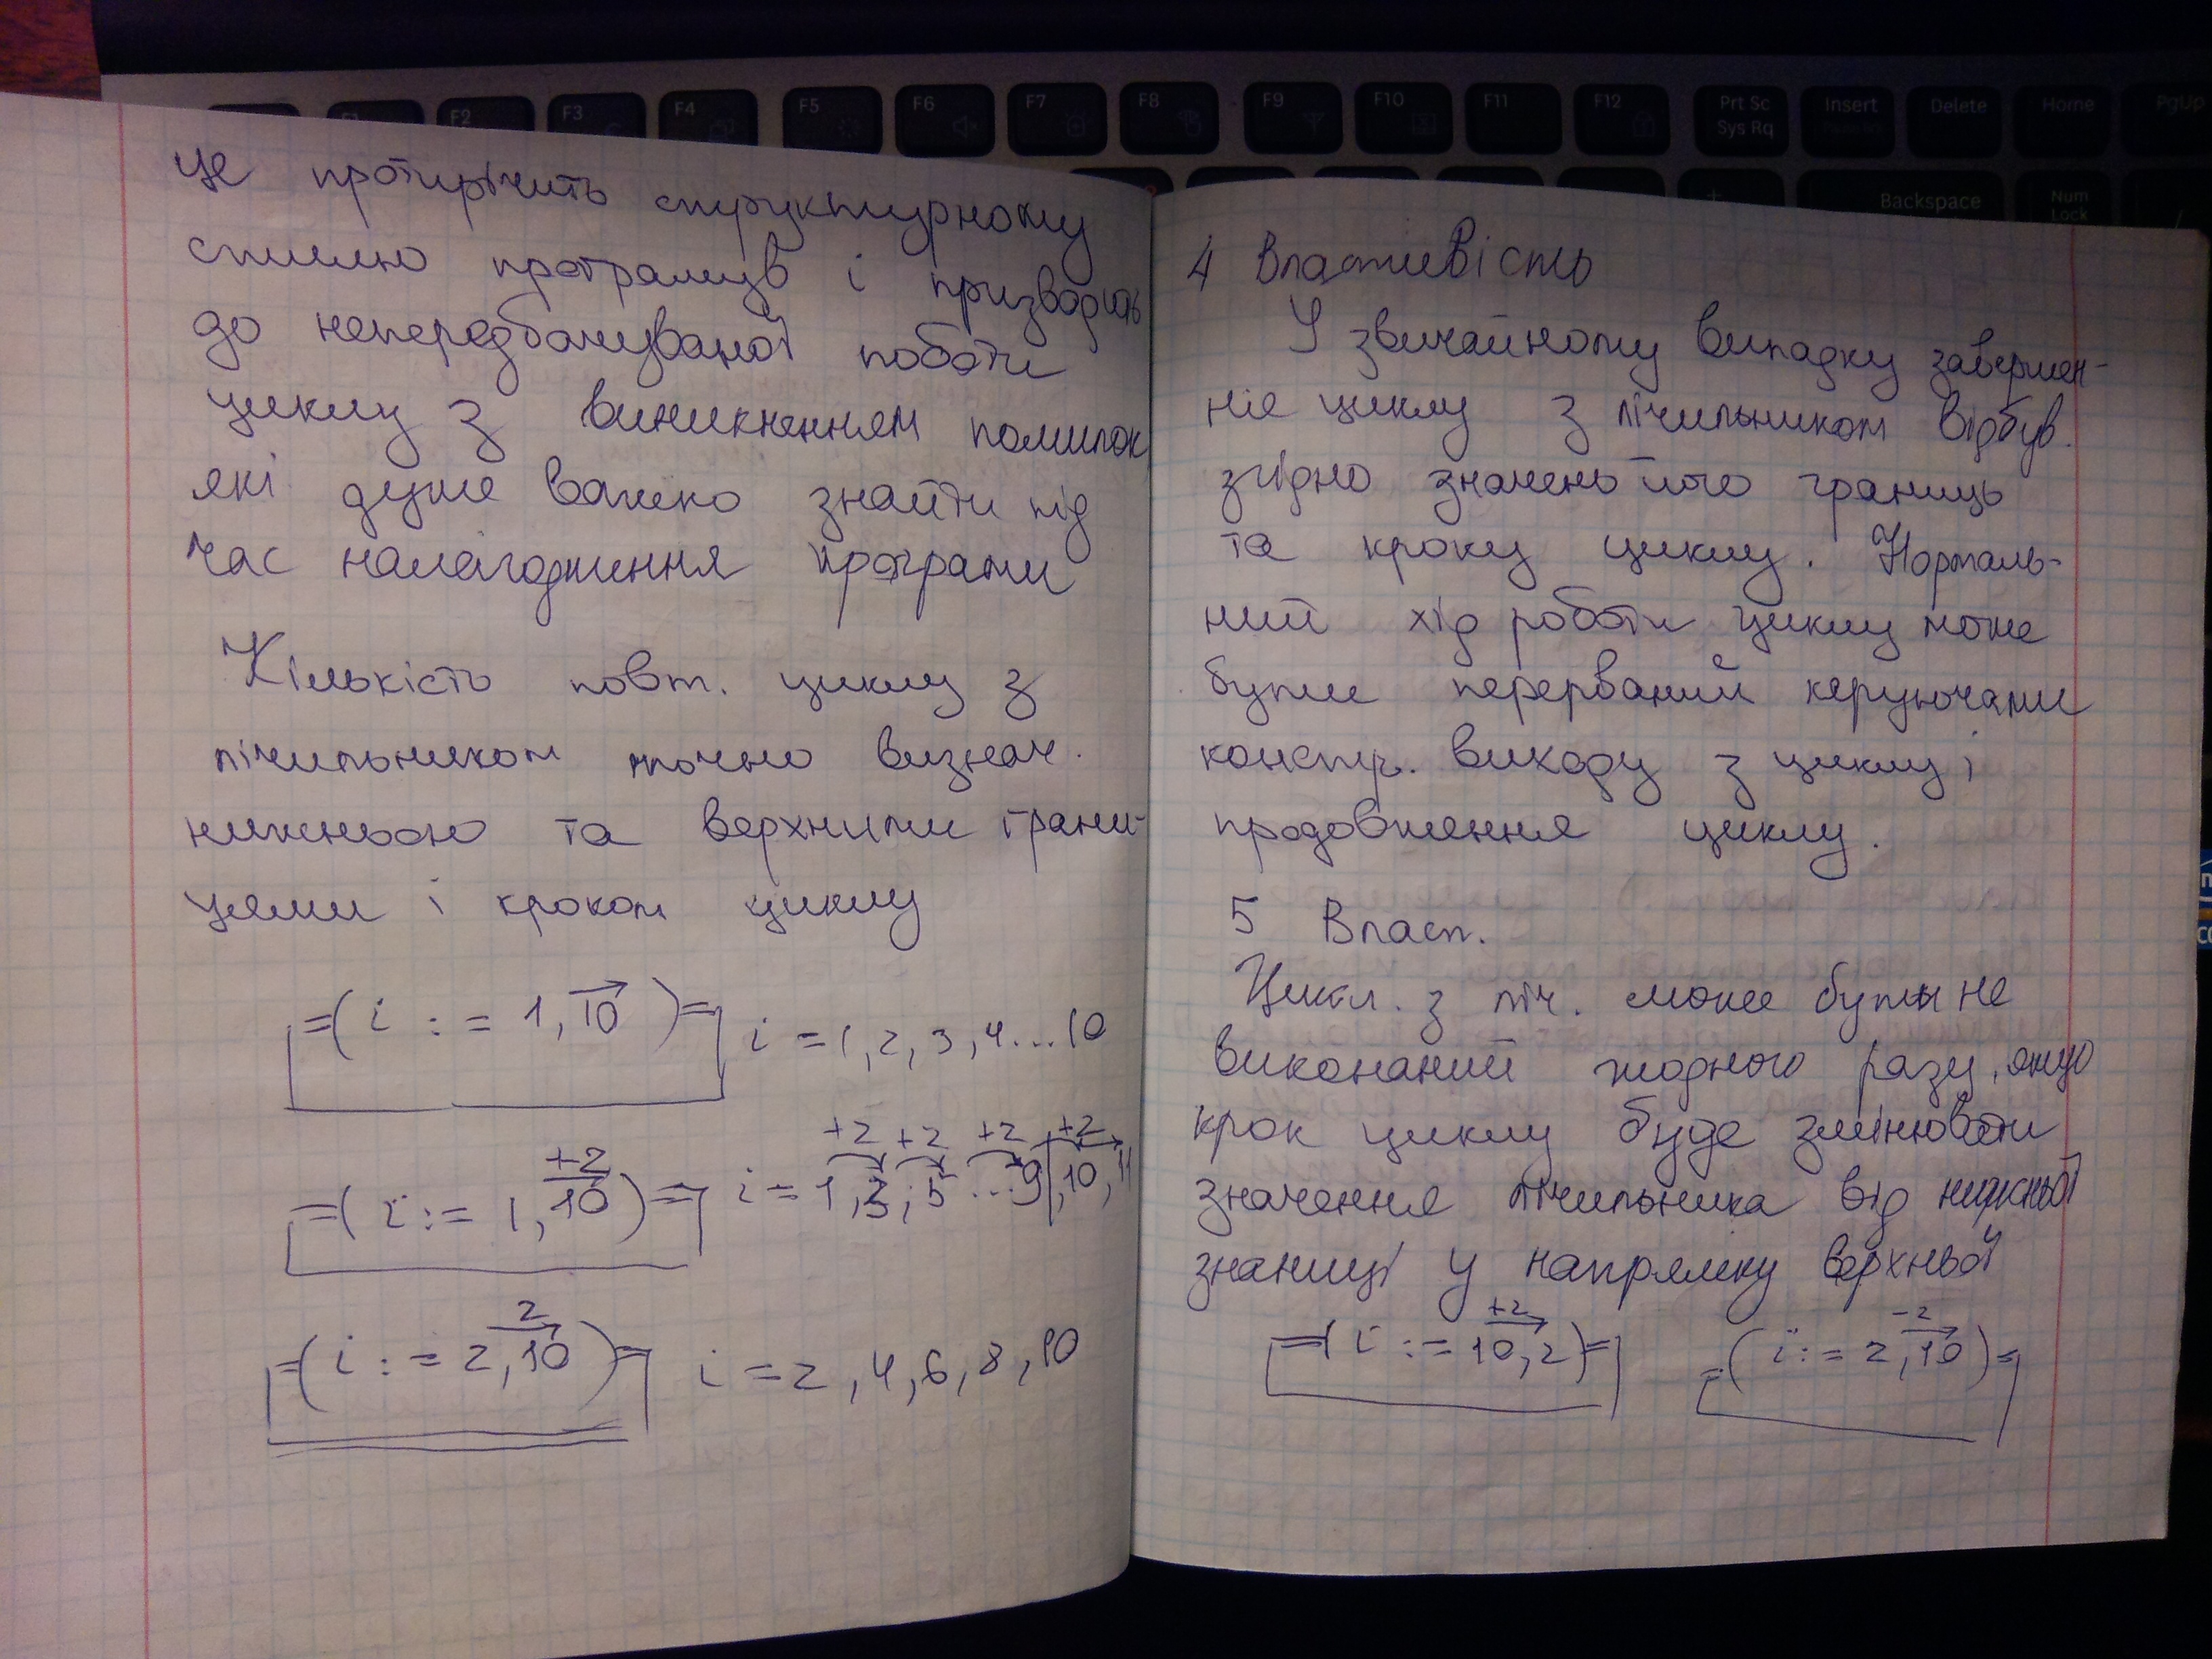 F2 F3 F4 F5 F6 F7 F8 F9 F10 F11 F12 Prt Sc Insert Delete Home PgUp
Sys Rq
Backspace Num
Lock
це протирічить структурному
стилю програмув і призводить
до непередбачуваної роботи
циклу з виникненням помилок
які дуже важко знайти під
час налагодження програми
Кількість повт. циклу з
лічильником точно визнач.
нижньою та верхними грани-
цями і кроком циклу
=( i := 1, 10 )= i = 1, 2, 3, 4 ... 10
+2 +2 +2 +2
+2
=( i := 1, 10 )= i = 1, 3, 5 ... 9|, 10, 11
2
=( i := 2, 10 )= i = 2, 4, 6, 8, 10
4 Властивість
У звичайному випадку завершен-
ня циклу з лічильником відбув.
згідно значень його границь
та кроку циклу. Нормаль-
ний хід роботи циклу може
бути перерваний керуючами
констр. виходу з циклу і
продовження циклу.
5 Власт.
Цикл. з ліч. може буты не
виконаний жодного разу, якщо
крок циклу буде змінювати
значення лічильника від нижньої
знаниці у напрямку верхньої
+2 -2
=( i := 10, 2 )= =( i := 2, 10 )=